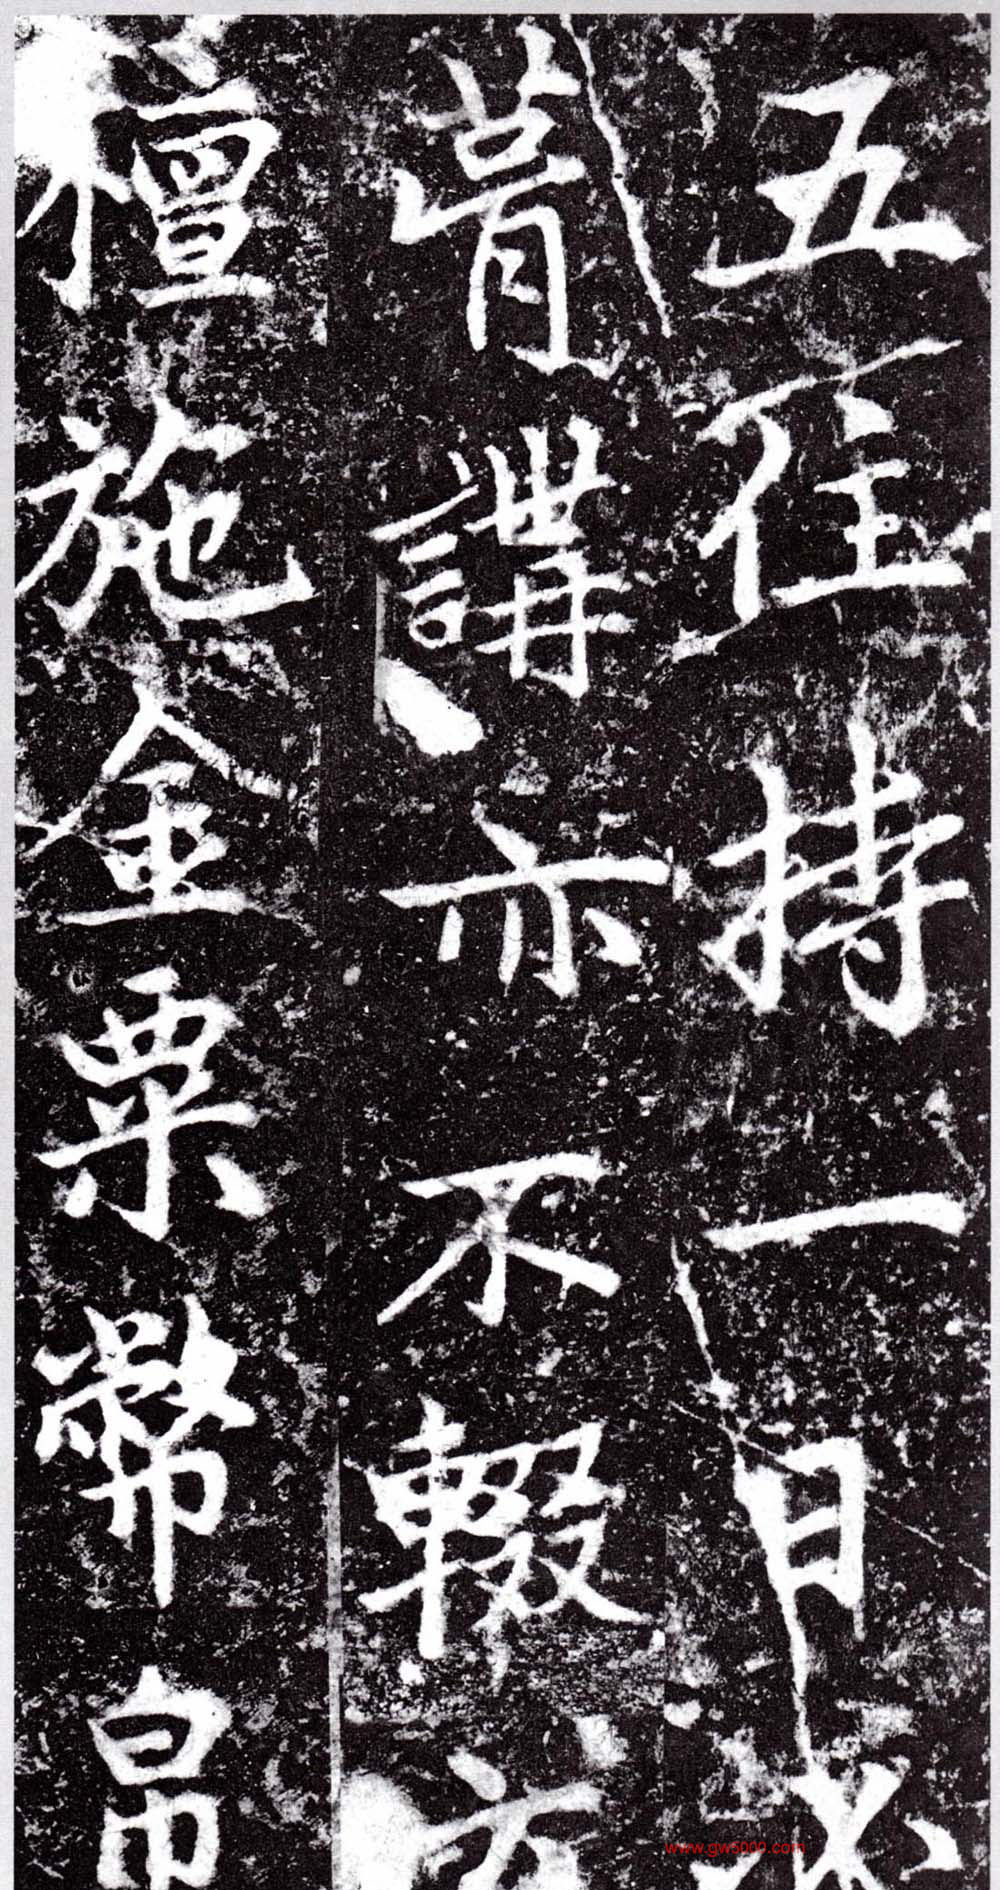 五住持一日
講亦不輟
檀施金粟幣帛
www.gw5000.com